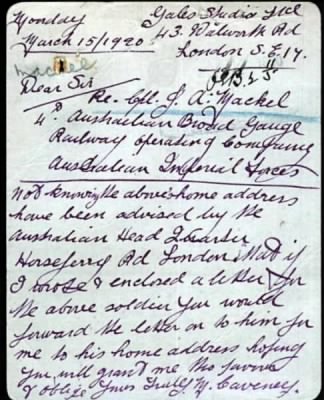 Monday Gales Studio Ltd
March 15/1920 43. Walworth Rd
London S.E.17.
Mackel
Dear Sir
Re. Cpl. J. A. Mackel
4th Australian Broad Gauge
Railway Operating Company
Australian Imperial Forces
Not knowing the above home address
have been advised by the
Australian Head Quarters
Horseferry Rd London that if
I wrote & enclosed a letter for
the above soldier you would
forward the letter on to him for
me to his home address hoping
you will grant me this favour
& oblige Yours Truly M. Caveney.